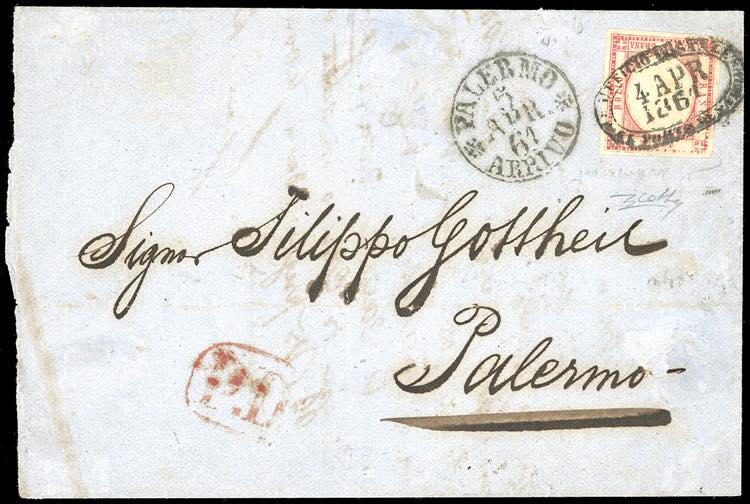 PALERMO
5
APR.
61
ARRIVO
4 APR
1861
Signor Filippo Gottheil
Palermo
P.D